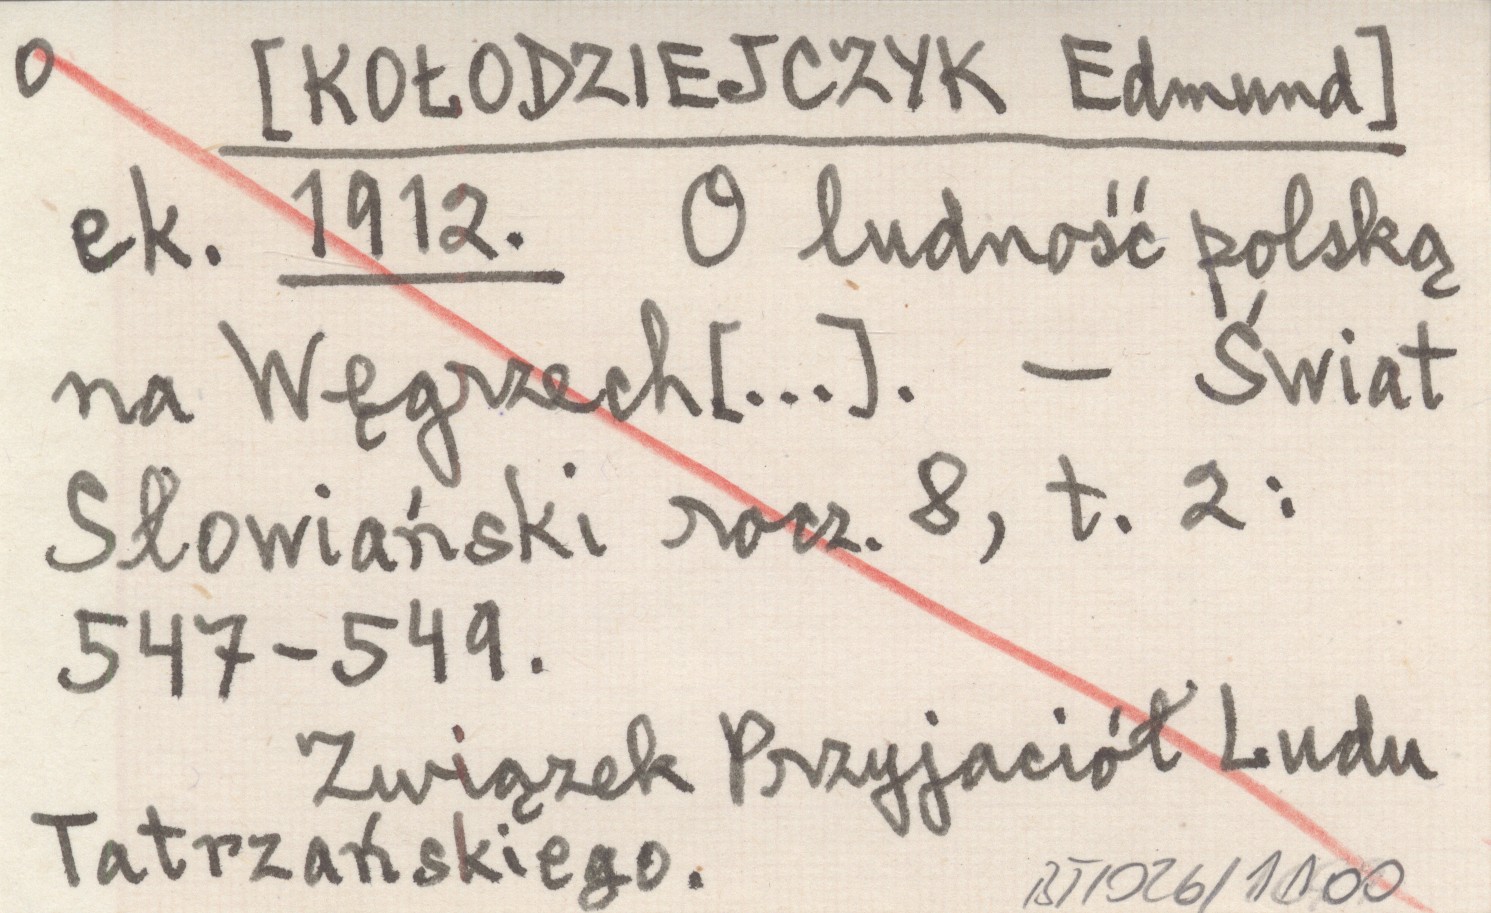 o [KOŁODZIEJCZYK Edmund]
ek. 1912. O ludność polską
na Węgrzech[...]. — Świat
Słowiański rocz. 8, t. 2:
547-549.
Związek Przyjaciół Ludu
Tatrzańskiego.